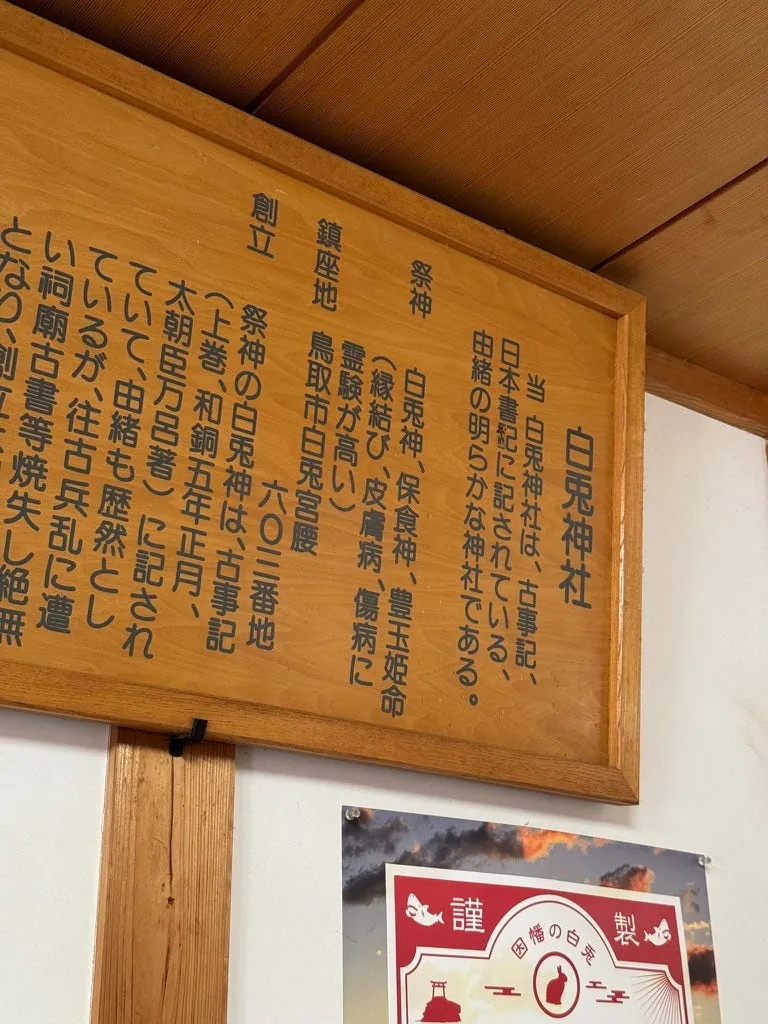 白兎神社
当 白兎神社は、古事記、
日本書紀に記されている、
由緒の明らかな神社である。
祭神 白兎神、保食神、豊玉姫命
(縁結び、皮膚病、傷病に
霊験が高い)
鎮座地 鳥取市白兎宮腰
六〇三番地
創立 祭神の白兎神は、古事記
(上巻、和銅五年正月、
太朝臣万呂著)に記され
ていて、由緒も歴然とし
ているが、往古兵乱に遭
い祠廟古書等焼失し絶無
となり、創立
謹製
因幡の白兎